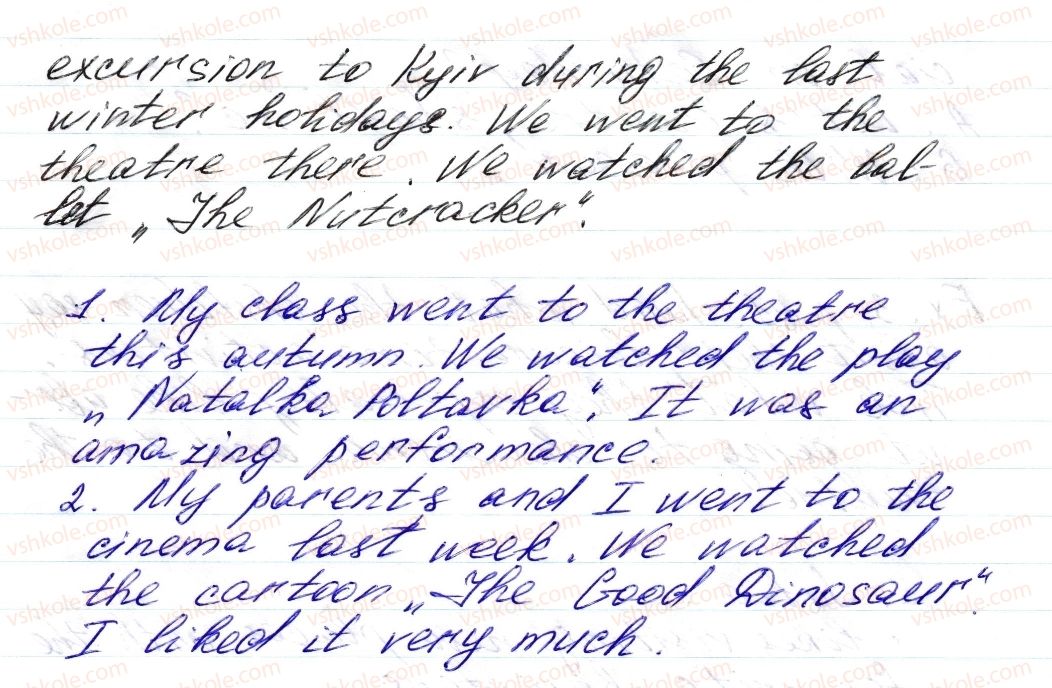 excursion to Kyiv during the last
winter holidays. We went to the
theatre there. We watched the bal-
let „The Nutcracker“.
1. My class went to the theatre
this autumn. We watched the play
„Natalka Poltavka“. It was an
amazing performance.
2. My parents and I went to the
cinema last week. We watched
the cartoon „The Good Dinosaur“.
I liked it very much.